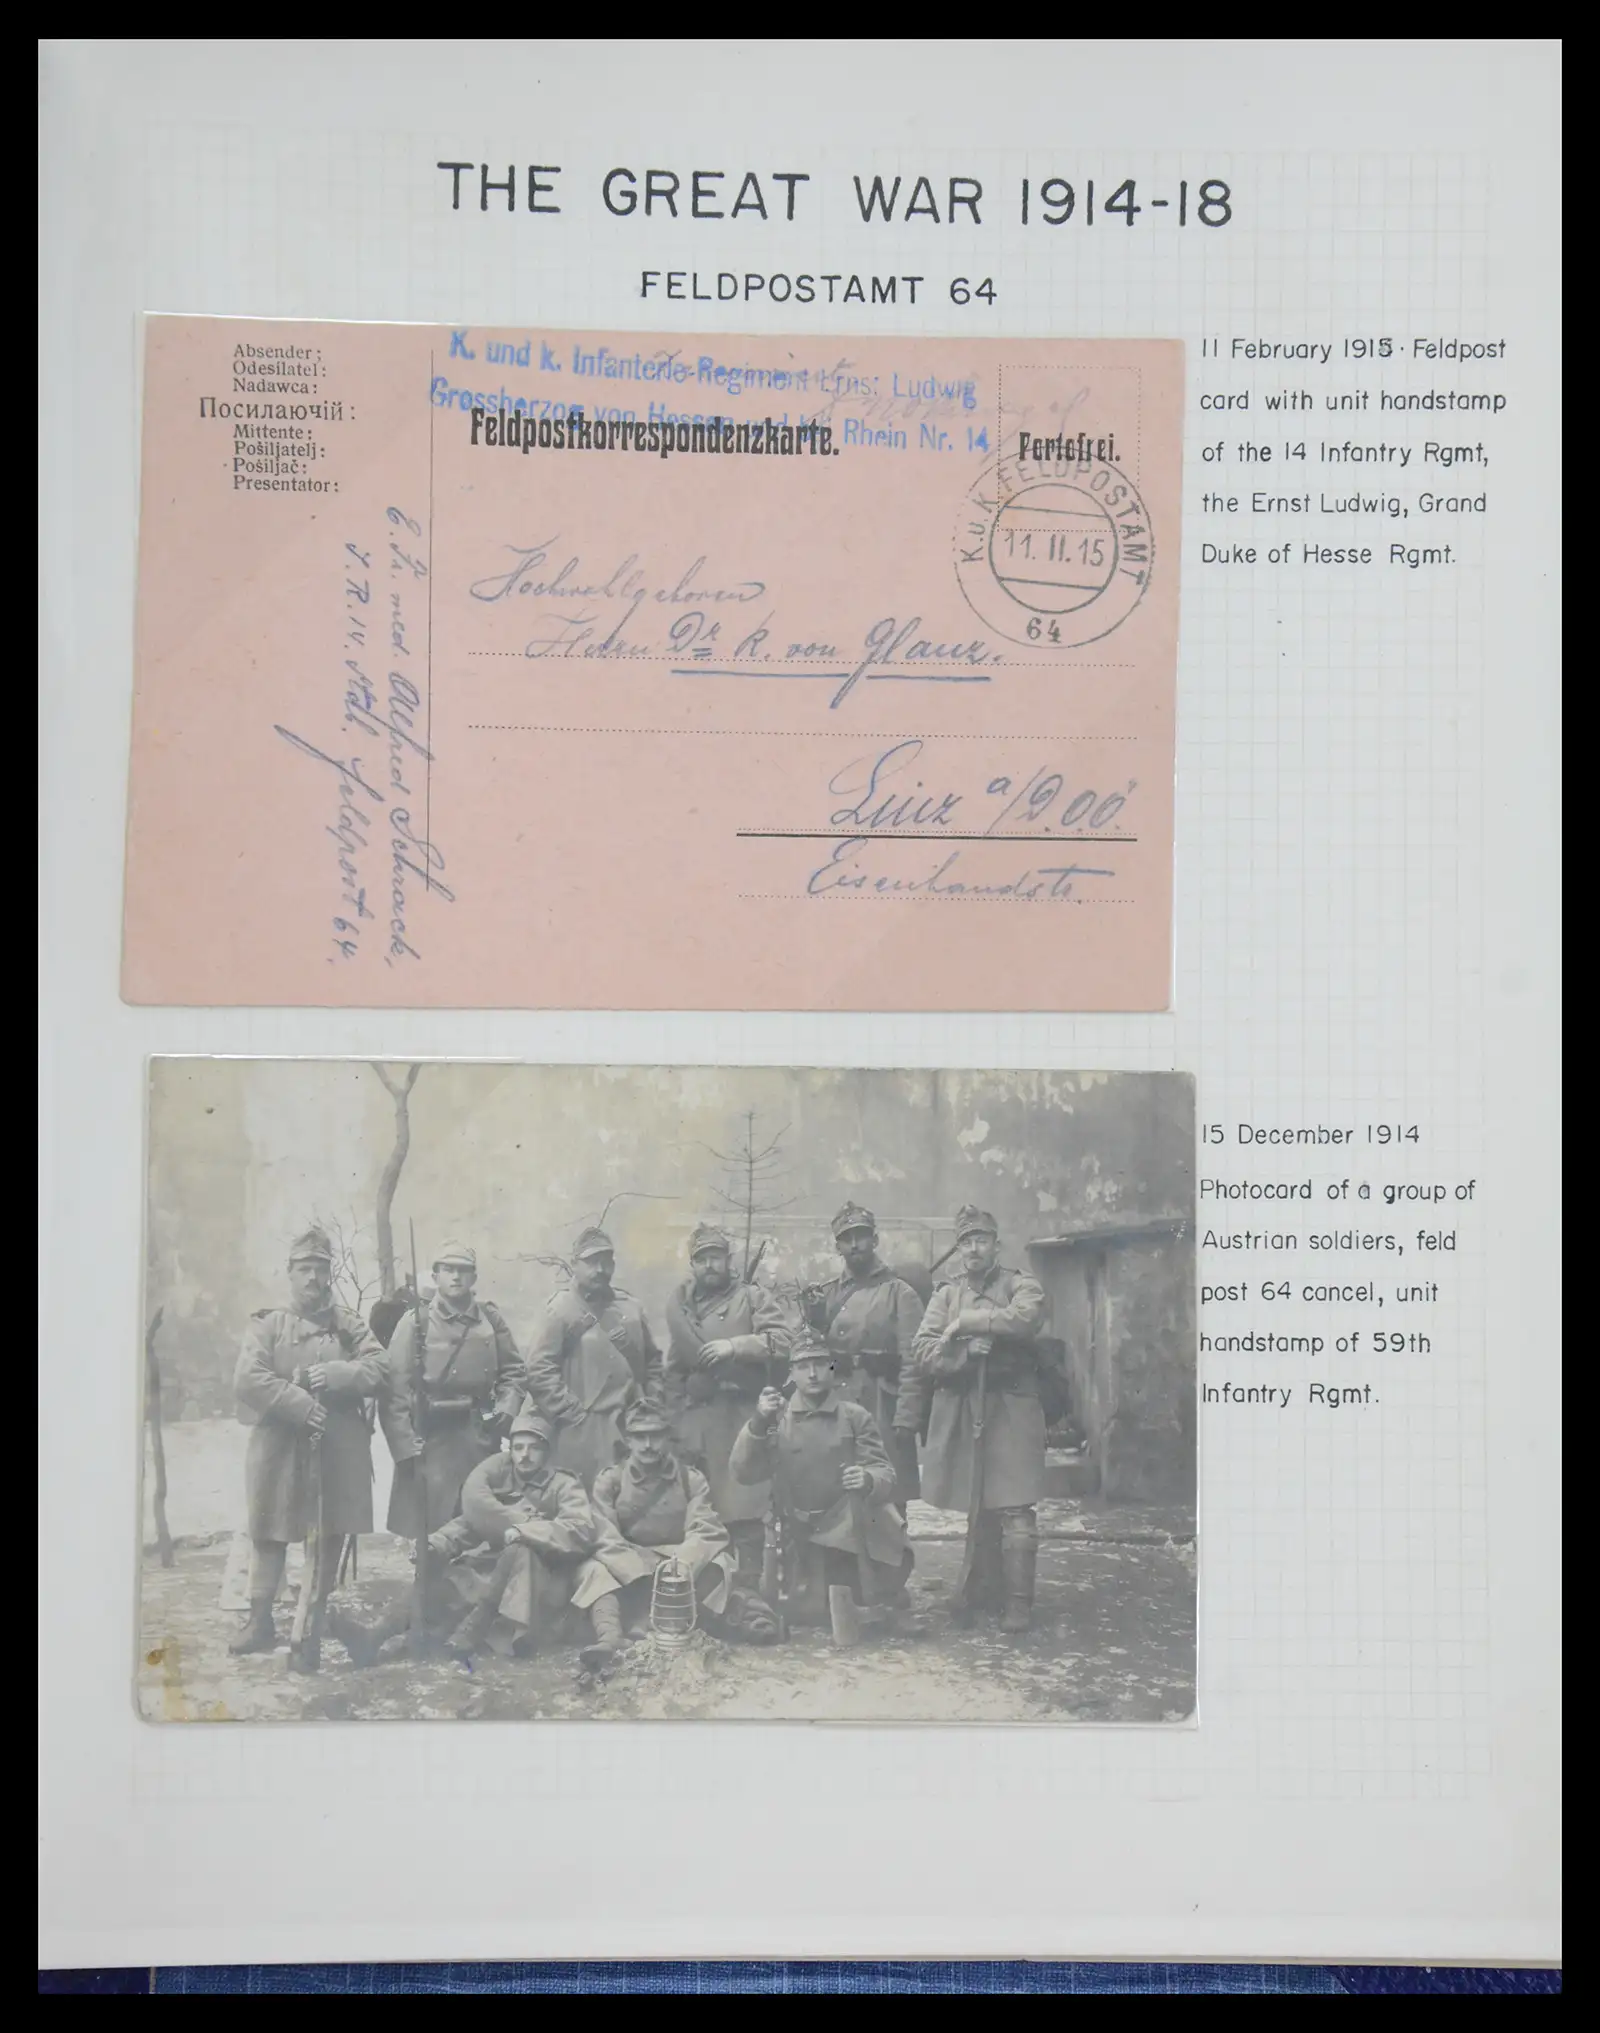 THE GREAT WAR 1914-18
FELDPOSTAMT 64
Absender:
Odesílatel:
Nadawca:
Посилаючій:
Mittente:
Pošiljatelj:
Pošiljač:
Presentator:
K. und k. Infanterie-Regiment Ernst Ludwig
Grossherzog von Hessen und bei Rhein Nr. 14
Feldpostkorrespondenzkarte.
Portofrei.
K.u.K. FELDPOSTAMT
11.II.15
64
Hochwohlgeboren
Herrn Dr. K. von Glanz.
Linz a/D. OÖ.
Eisenhandstr.
E. Fr. med. Alfred Schrack,
I.R. 14. Feldpost 64.
11 February 1915. Feldpost
card with unit handstamp
of the 14 Infantry Rgmt,
the Ernst Ludwig, Grand
Duke of Hesse Rgmt.
15 December 1914
Photocard of a group of
Austrian soldiers, feld
post 64 cancel, unit
handstamp of 59th
Infantry Rgmt.